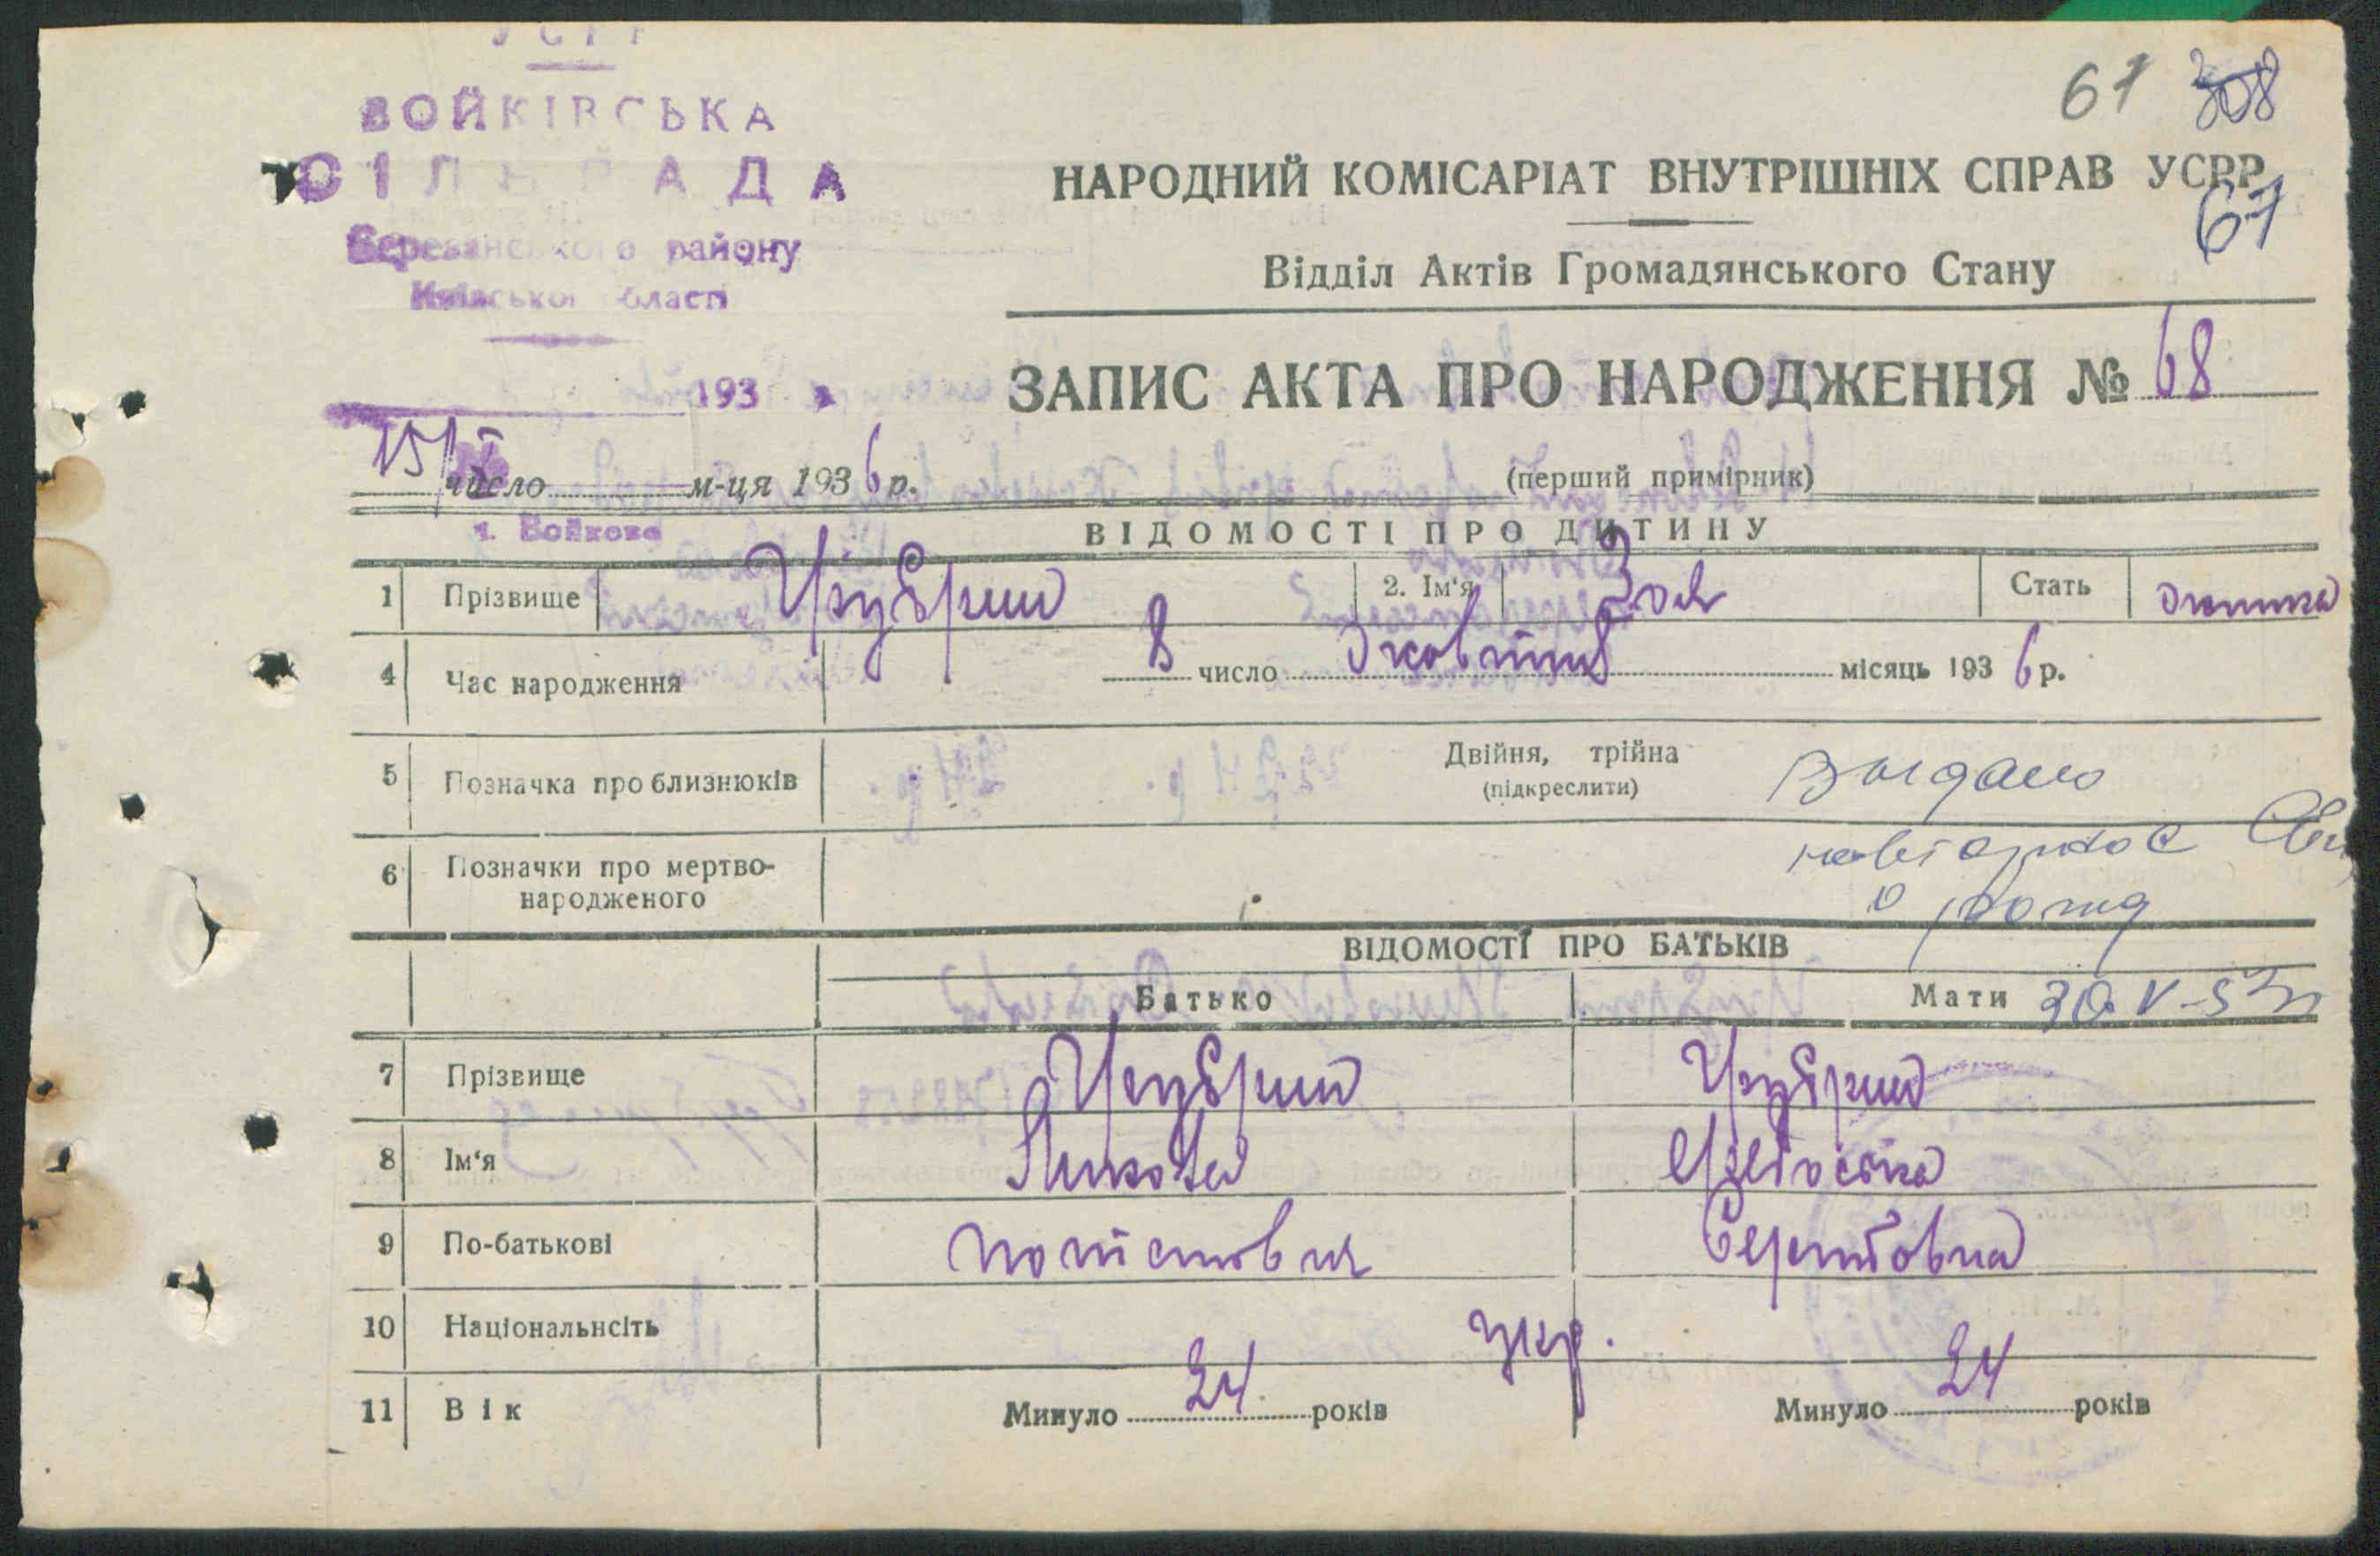 УСРР
ВОЙКІВСЬКА
СІЛЬРАДА
Березанського району
Київської області
193
61 308
НАРОДНИЙ КОМІСАРІАТ ВНУТРІШНІХ СПРАВ УСРР
67
Відділ Актів Громадянського Стану
ЗАПИС АКТА ПРО НАРОДЖЕННЯ № 68
15/X число м-ця 1936 р.
(перший примірник)
с. Войкове
ВІДОМОСТІ ПРО ДИТИНУ
1 Прізвище Цибрий 2. Ім'я Зоя Стать жіинка
4 Час народження 8 число Жовтня місяць 1936 р.
5 Позначка про близнюків Двійня, трійна
(підкреслити)
Выдано
повторное Св
6 Позначки про мертво-
народженого
о рожд
ВІДОМОСТІ ПРО БАТЬКІВ
Батько Мати 30 V-53
7 Прізвище Цибрий Цибрий
8 Ім'я Микола
9 По-батькові Сергіовна
10 Національнсіть укр.
11 Вік Минуло 24 років Минуло 24 років